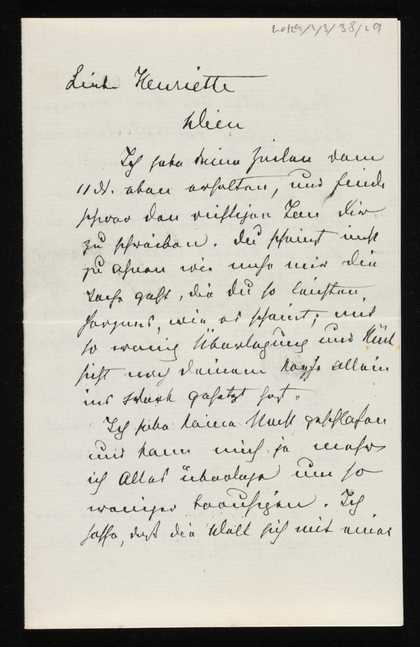 Liebe Henriette
Wien
Ich habe Deine Zeilen vom
11 d. eben erhalten, und finde
schwer den richtigen Ton Dir
zu schreiben. Du scheinst nicht
zu ahnen wie nahe mir die
Sache geht, die Du so leichten
Herzens, wie es scheint; mit
so wenig Überlegung und Rück
sicht nach Deinem Kopfe allein
ins Werk gesetzt hast.
Ich habe keine Nacht geschlafen
und kann mich je mehr
ich Alles überlege um so
weniger beruhigen. Ich
hoffe, daß die Welt sich mit einer